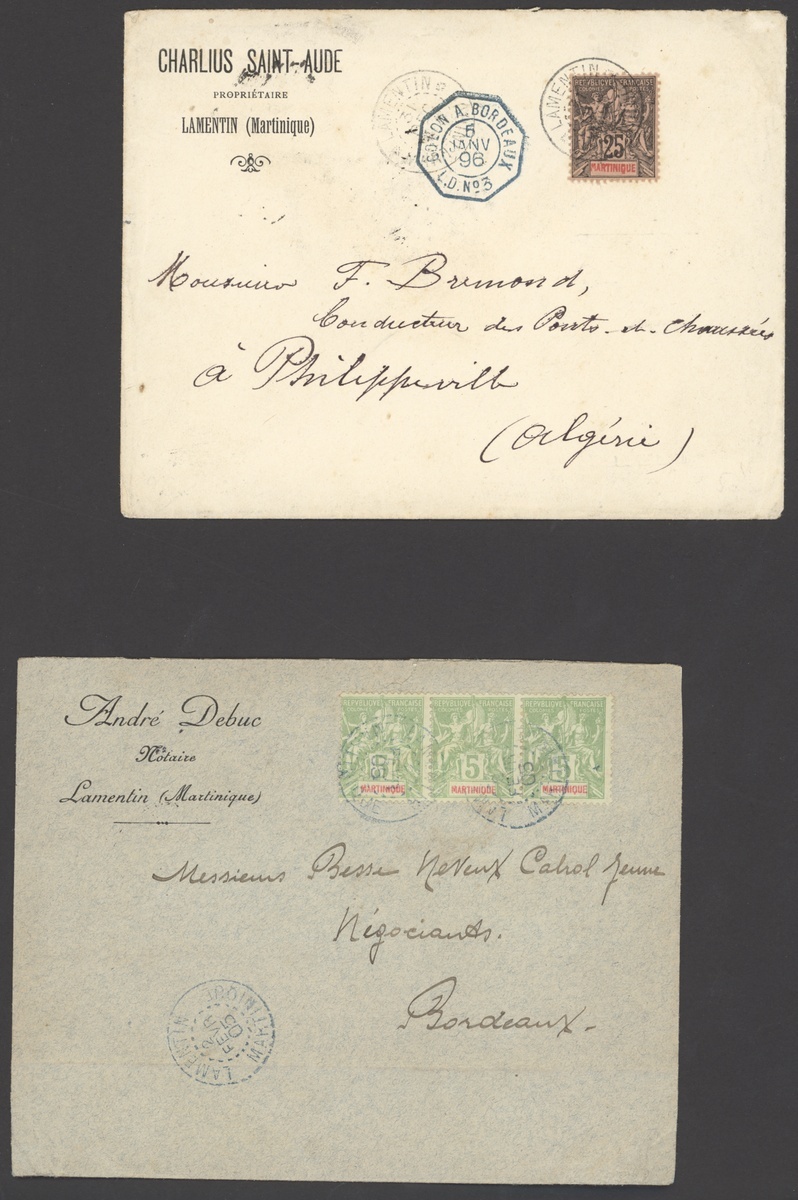 CHARLIUS SAINT-AUDE
PROPRIÉTAIRE
LAMENTIN (Martinique)
LAMENTIN
COLON A BORDEAUX
5
JANV
96
L.D. Nº3
LAMENTIN
REPUBLIQUE FRANÇAISE
COLONIES POSTES
25
MARTINIQUE
Monsieur F. Bremond,
Conducteur des Ponts-et-Chaussées
à Philippeville
(Algérie)
André Debuc
Notaire
Lamentin (Martinique)
REPUBLIQUE FRANÇAISE
MARTINIQUE
REPUBLIQUE FRANÇAISE
5
MARTINIQUE
REPUBLIQUE FRANÇAISE
5
MARTINIQUE
Messieurs Besse Neveux Cabrol Jeune
Négociants.
Bordeaux-
LAMENTIN
MARTINIQUE
FEVR
05